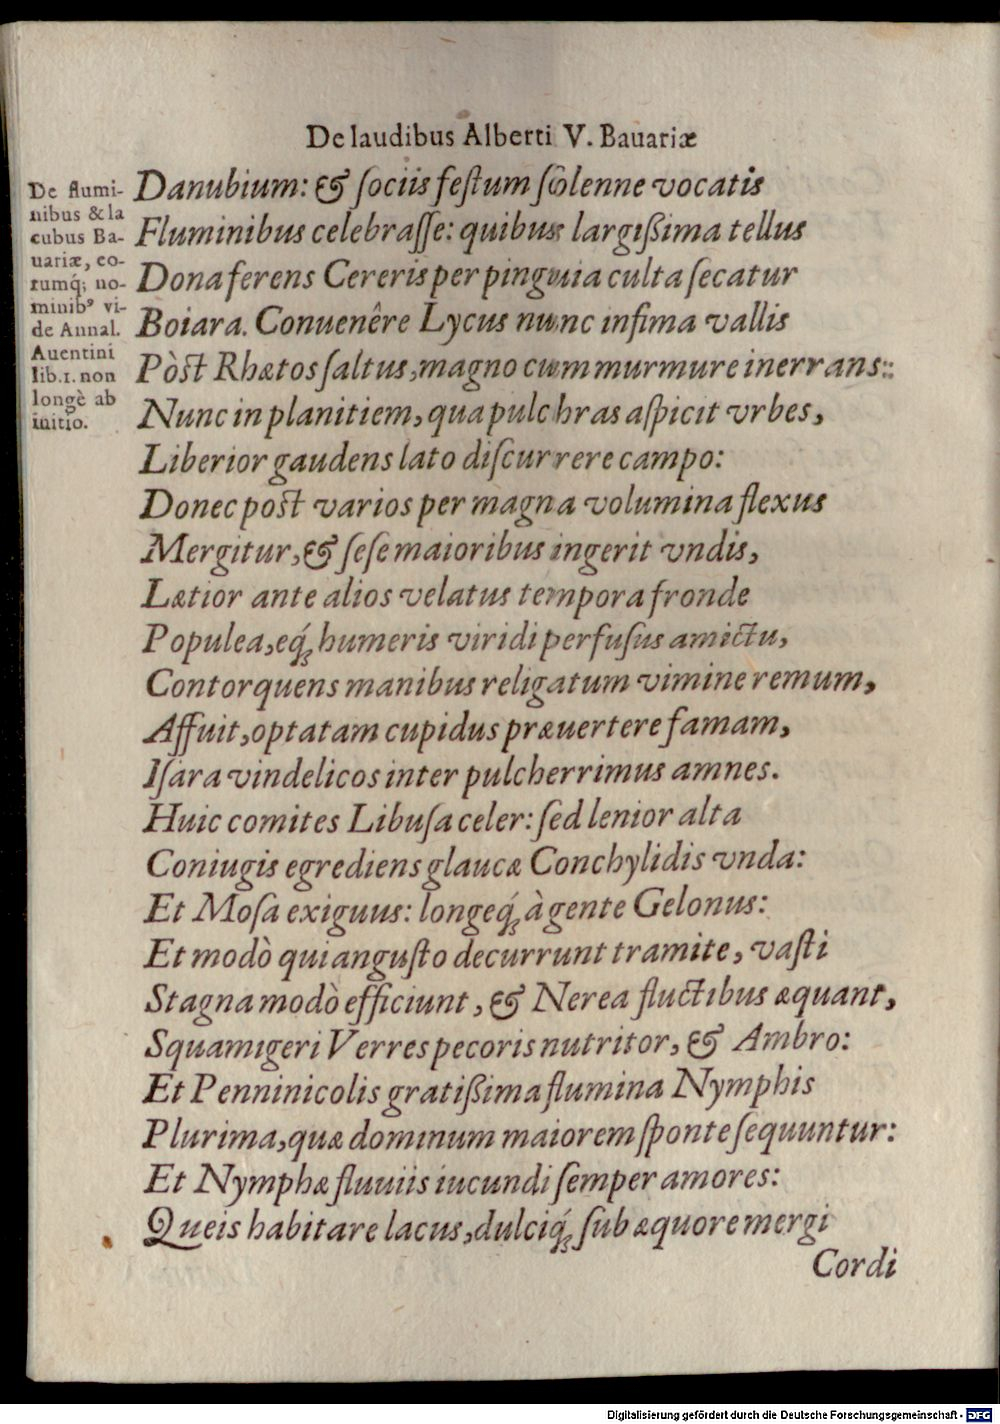 De laudibus Alberti V. Bauariæ
De flumi-
nibus & la
cubus Ba-
uariæ, eo-
rumq́; no-
minibꝰ vi-
de Annal.
Auentini
lib.1. non
longè ab
initio.
Danubium: & ſociis feſtum ſolenne vocatis
Fluminibus celebraſſe: quibus largißima tellus
Dona ferens Cereris per pinguia culta ſecatur
Boiara. Conuenêre Lycus nunc infima vallis
Pòſt Rhætos ſaltus, magno cum murmure inerrans:
Nunc in planitiem, qua pulchras aſpicit vrbes,
Liberior gaudens lato diſcurrere campo:
Donec poſt varios per magna volumina flexus
Mergitur, & ſeſe maioribus ingerit vndis,
Lætior ante alios velatus tempora fronde
Populea, eq́; humeris viridi perfuſus amictu,
Contorquens manibus religatum vimine remum,
Affuit, optatam cupidus præuertere famam,
Iſara vindelicos inter pulcherrimus amnes.
Huic comites Libuſa celer: ſed lenior alta
Coniugis egrediens glaucæ Conchylidis vnda:
Et Moſa exiguus: longeq́; à gente Gelonus:
Et modò qui anguſto decurrunt tramite, vaſti
Stagna modò efficiunt, & Nerea fluctibus æquant,
Squamigeri Verres pecoris nutritor, & Ambro:
Et Penninicolis gratißima flumina Nymphis
Plurima, quæ dominum maiorem ſponte ſequuntur:
Et Nymphæ fluuiis iucundi ſemper amores:
Queis habitare lacus, dulciq́; ſub æquore mergi
Cordi
Digitalisierung gefördert durch die Deutsche Forschungsgemeinschaft - DFG